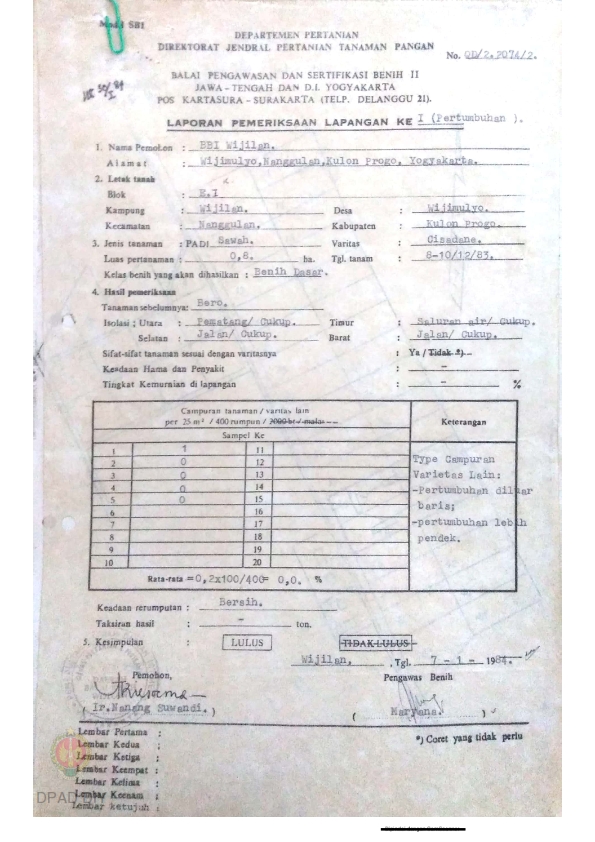 Model SB1
DEPARTEMEN PERTANIAN
DIREKTORAT JENDRAL PERTANIAN TANAMAN PANGAN
No. QD/2.2074/2.
BALAI PENGAWASAN DAN SERTIFIKASI BENIH II
JAWA-TENGAH DAN D.I. YOGYAKARTA
POS KARTASURA-SURAKARTA (TELP. DELANGGU 21).
LAPORAN PEMERIKSAAN LAPANGAN KE I (Pertumbuhan ).
1. Nama Pemohon : BBI Wijilan.
Alamat : Wijimulyo,Nanggulan,Kulon Progo, Yogyakarta.
2. Letak tanah
Blok : E.I
Kampung : Wijilan. Desa : Wijimulyo.
Kecamatan : Nanggulan. Kabupaten : Kulon Progo.
3. Jenis tanaman : PADI Sawah. Varitas : Cisadane.
Luas pertanaman : 0,8. ha. Tgl. tanam : 8-10/12/83.
Kelas benih yang akan dihasilkan : Benih Dasar.
4. Hasil pemeriksaan
Tanaman sebelumnya: Bero.
Isolasi ; Utara : Pematang/ Cukup. Timur : Saluran air/ Cukup.
Selatan : Jalan/ Cukup. Barat : Jalan/ Cukup.
Sifat-sifat tanaman sesuai dengan varitasnya : Ya / Tidak *)
Keadaan Hama dan Penyakit : -
Tingkat Kemurnian di lapangan : - %
Campuran tanaman / varitas lain
per 25 m² / 400 rumpun / 2000 btr / malai
Keterangan
Sampel Ke
1 1 11
2 0 12
3 0 13
4 0 14
5 0 15
6 16
7 17
8 18
9 19
10 20
Type Campuran
Varietas Lain:
-Pertumbuhan diluar
baris;
-pertumbuhan lebih
pendek.
Rata-rata =0,2x100/400= 0,0. %
Keadaan rerumputan : Bersih.
Taksiran hasil : - ton.
5. Kesimpulan : LULUS TIDAK LULUS
Wijilan, , Tgl. 7 - 1 - 1984.
Pemohon, Pengawas Benih
( Ir.Nanang Suwandi. ) ( Maryana. )
*) Coret yang tidak perlu
Lembar Pertama ;
Lembar Kedua ;
Lembar Ketiga ;
Lembar Keempat ;
Lembar Kelima ;
Lembar Keenam ;
Lembar ketujuh :
DPAD